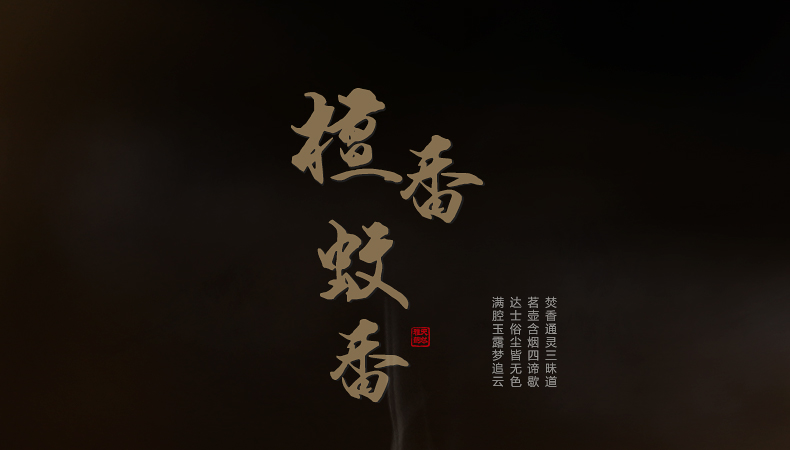 檀香
蚊香
焚香通灵三昧道
茗壶含烟四谛歇
达士俗尘皆无色
满腔玉露梦追云